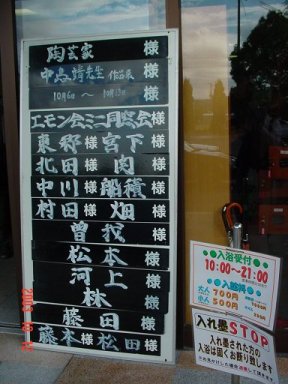 陶芸家 様
中島 靖先生 作品展
10月6日 ～ 10月13日
エモン会ミニ同窓会様
東郷様 宮下様
北田様 肉様
中川様 船積様
村田様 畑様
曽我様
松本様
河上様
林様
藤田様
藤本様 松田様
入浴受付
10:00～21:00
入浴料
大人 700円
小人 500円
入れ墨STOP
入れ墨された方の
入浴は固くお断り致します